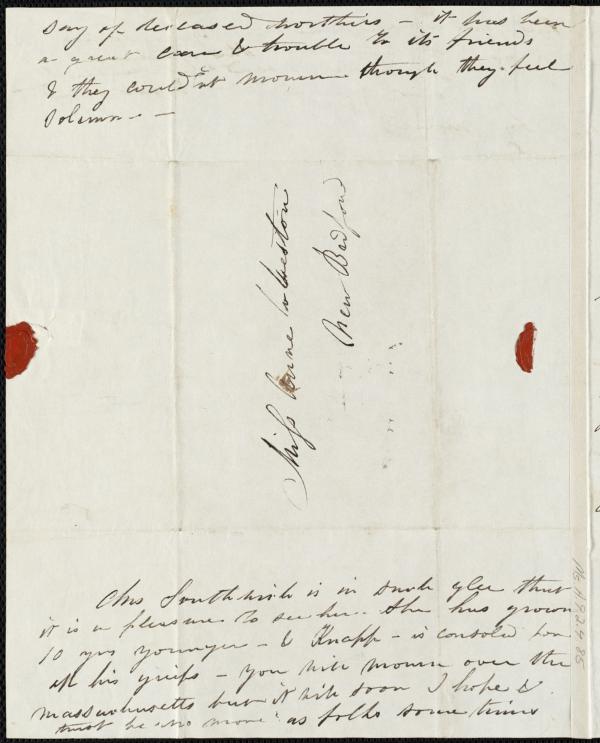 say of deceased worthies - it has been
a great care & trouble to its friends
& they could nt mourn though they feel
solemn. -
Miss Anne W Weston
New Bedford
Chs Southwick is in such glee that
it is a pleasure to see her. She has grown
10 yrs younger - & Knapp - is consoled for
all his griefs - you will mourn over the
Massachusetts but it will soon I hope &
trust be "no more" as folks some times
Ms. A.9.2.4.86